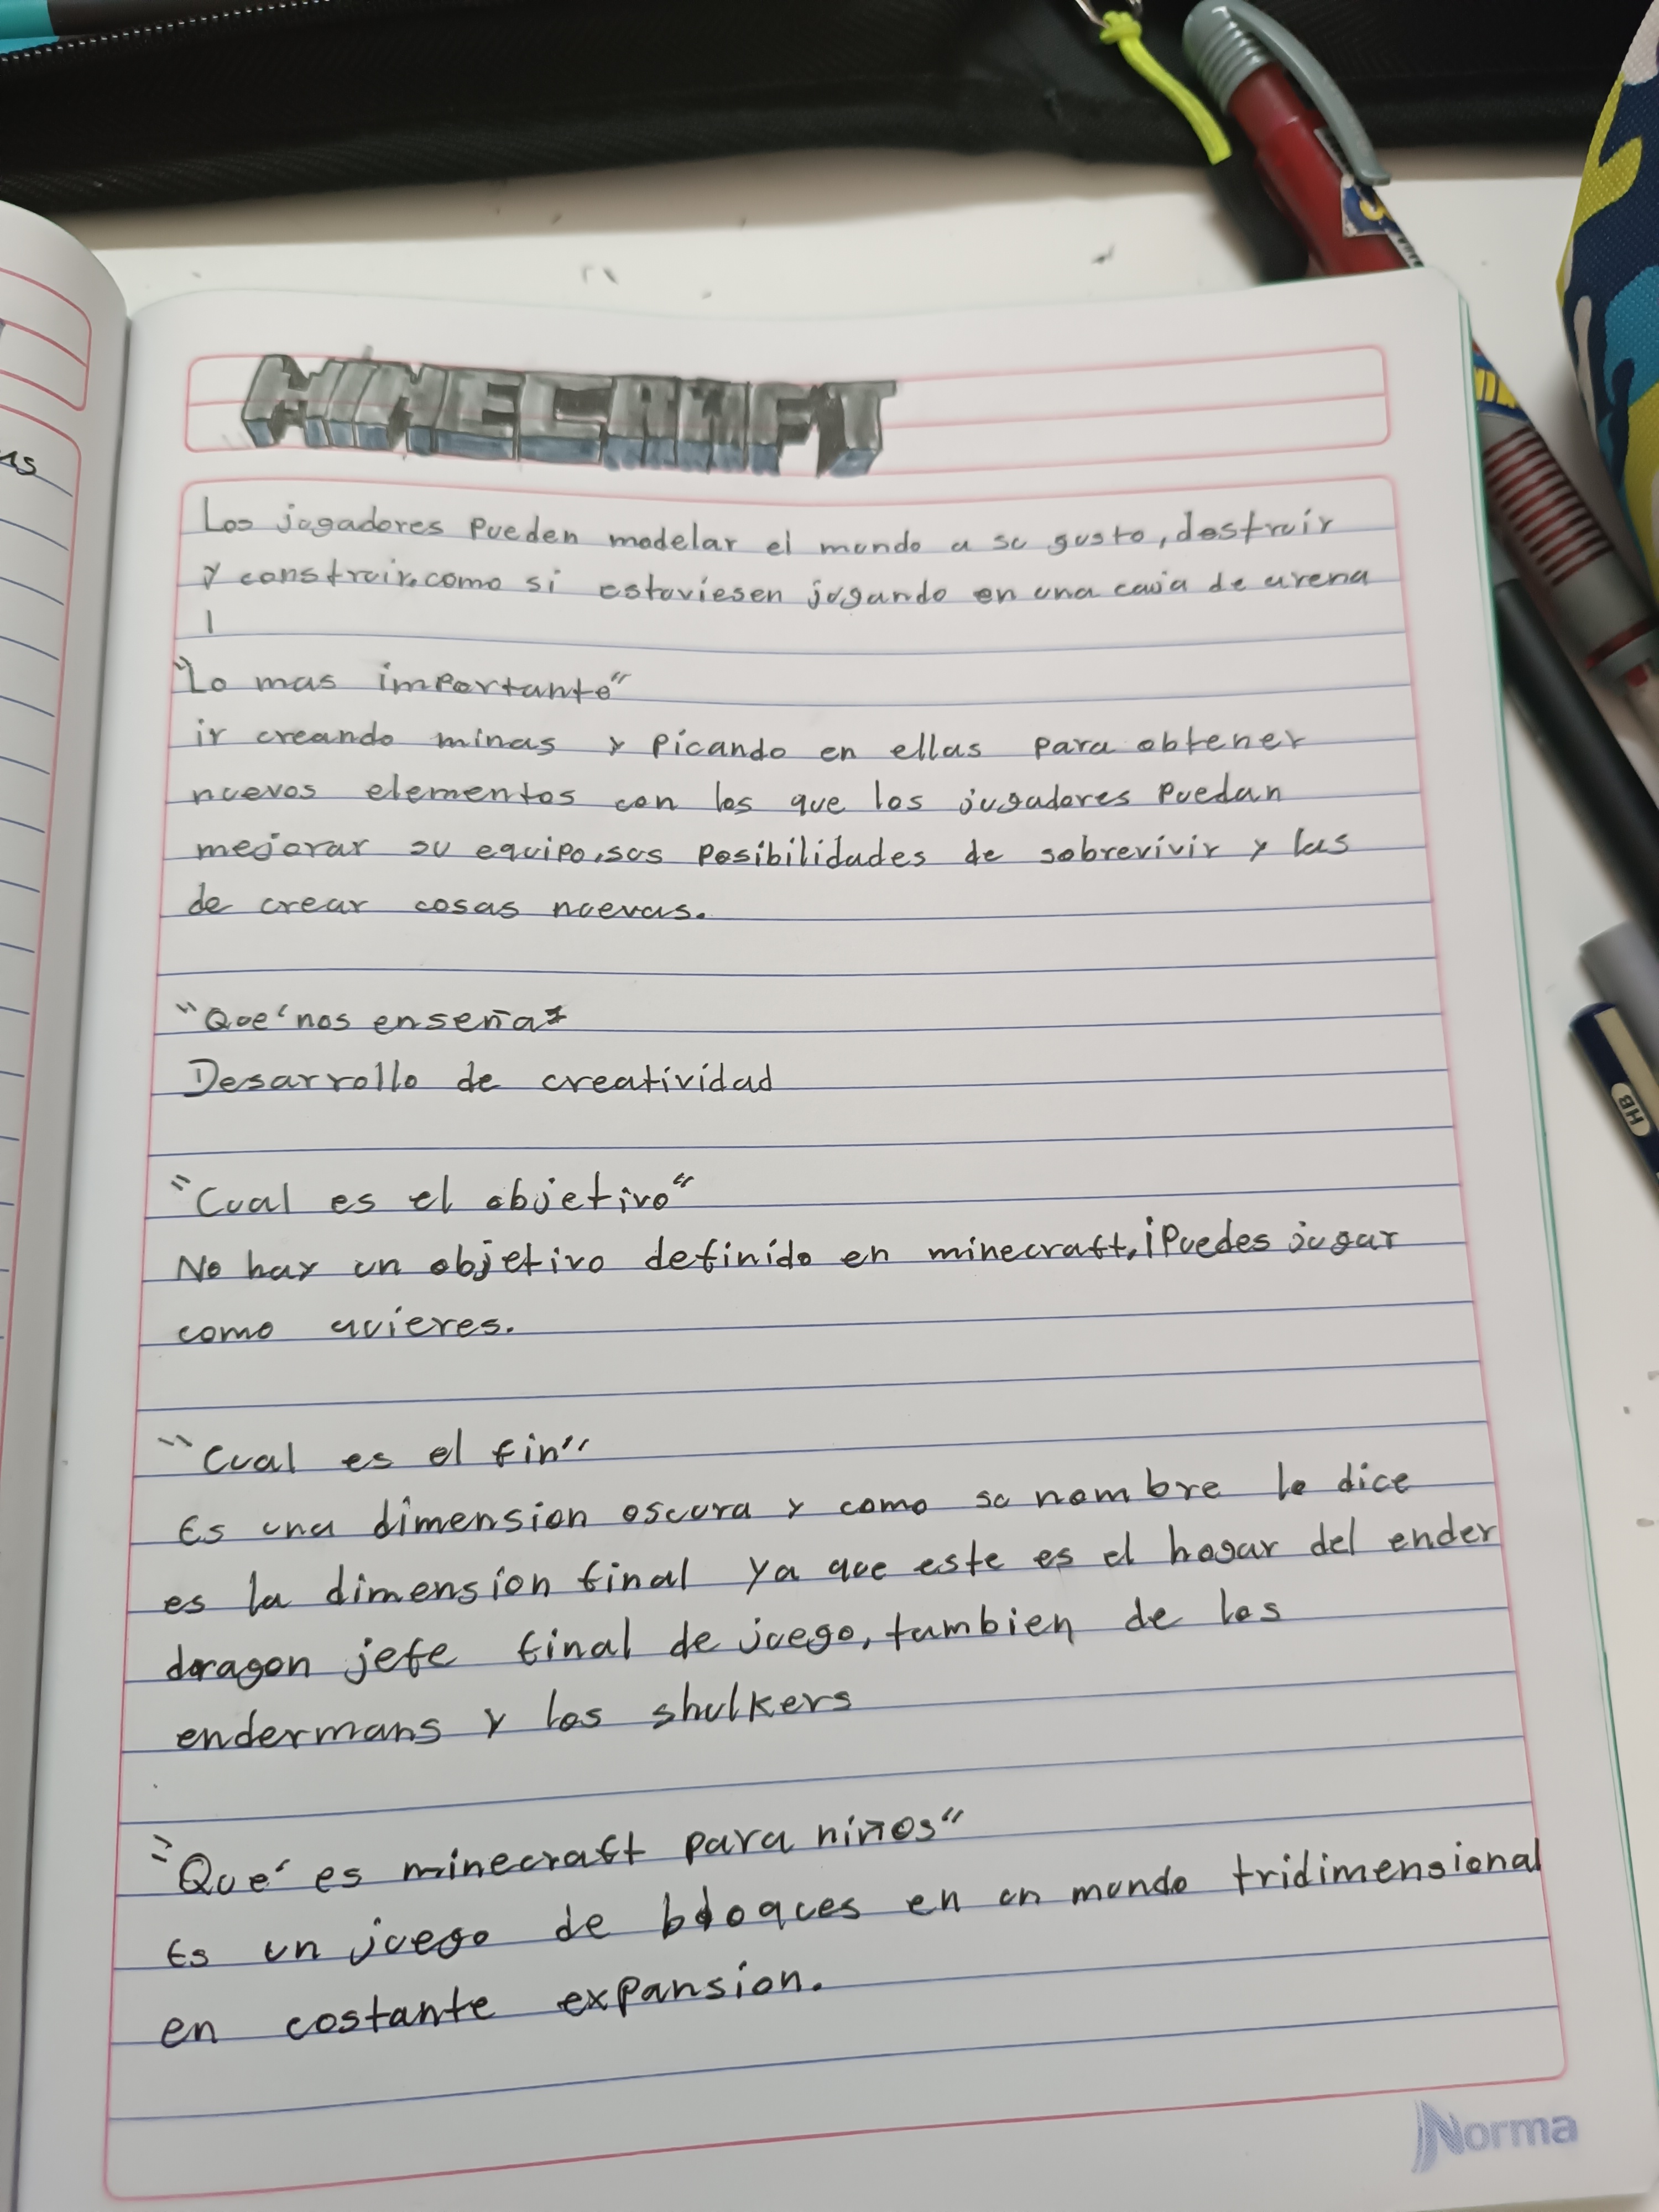 as
MINECRAFT
Los jugadores pueden modelar el mundo a su gusto, destruir
y construir.como si estuviesen jugando en una caja de arena
"Lo mas importante"
ir creando minas y picando en ellas para obtener
nuevos elementos con los que los jugadores puedan
mejorar su equipo,sus posibilidades de sobrevivir y las
de crear cosas nuevas.
"Que' nos enseña"
Desarrollo de creatividad
"Cual es el objetivo"
No hay un objetivo definido en minecraft,¡Puedes jugar
como quieres.
"Cual es el fin"
Es una dimension oscura y como su nombre lo dice
es la dimension final ya que este es el hogar del ender
dragon jefe final de juego, tambien de los
endermans y los shulkers
"Que' es minecraft para niños"
Es un juego de bloques en un mundo tridimensional
en costante expansion.
Norma
HB